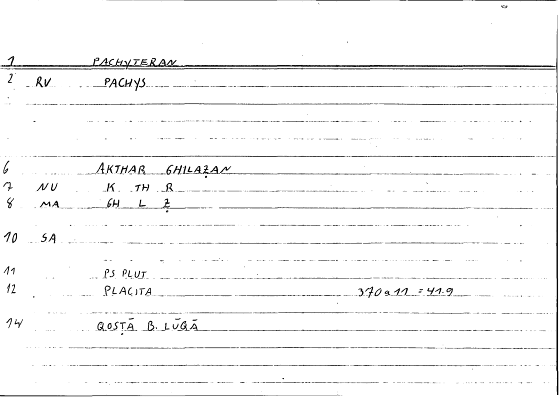 1 PACHYTERAN
2 RV PACHYS
6 AKTHAR GHILAẒAN
7 NU K TH R
8 MA GH L Ẓ
10 SA
11 PS PLUT
12 PLACITA 370a11 = 41.9
14 QOSṬĀ B. LŪQĀ